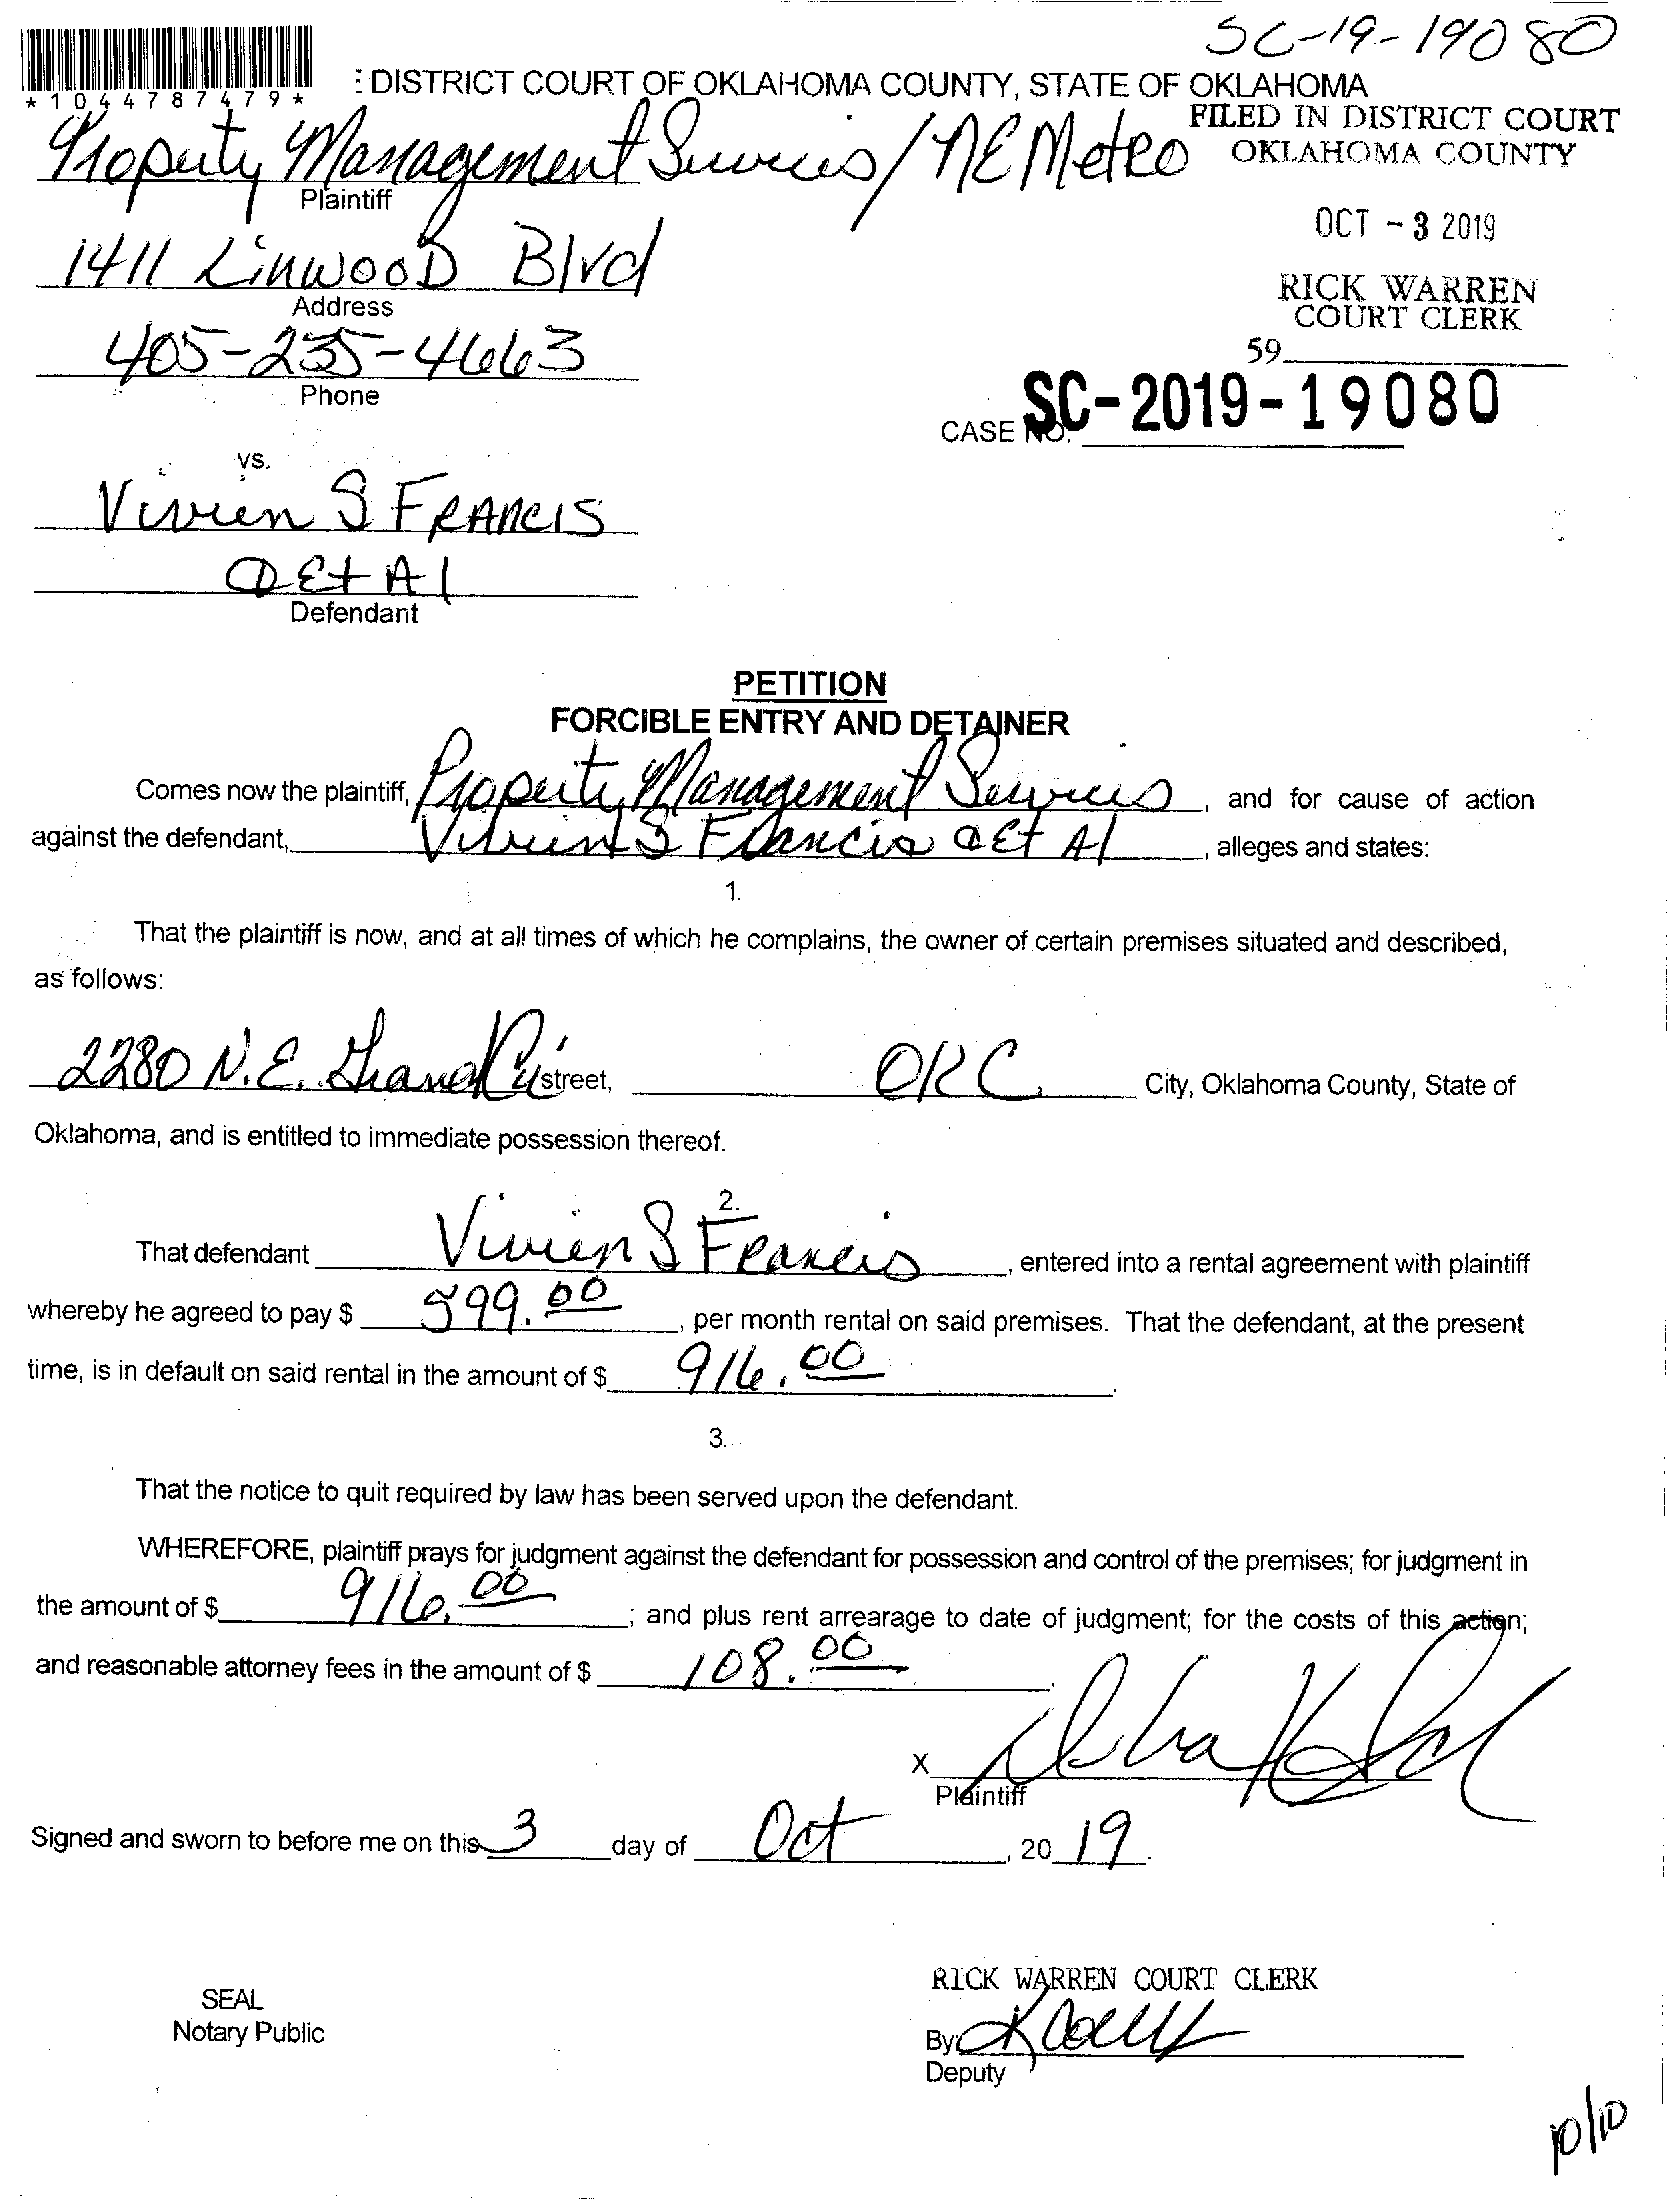 SC-19-19080
*1044787479*
: DISTRICT COURT OF OKLAHOMA COUNTY, STATE OF OKLAHOMA
FILED IN DISTRICT COURT
OKLAHOMA COUNTY
Property Management Services/NE Metro
Plaintiff
OCT - 3 2019
1411 LinwooD Blvd
Address
RICK WARREN
COURT CLERK
405-235-4663
Phone
59
CASE NO. SC-2019-19080
vs.
Vivien S FRANCIS
Et Al
Defendant
PETITION
FORCIBLE ENTRY AND DETAINER
Comes now the plaintiff, Property Management Services, and for cause of action
against the defendant, Vivien S Francis Et Al, alleges and states:
1.
That the plaintiff is now, and at all times of which he complains, the owner of certain premises situated and described,
as follows:
2280 N.E. Grand street, OKC City, Oklahoma County, State of
Oklahoma, and is entitled to immediate possession thereof.
2.
That defendant Vivien S Francis, entered into a rental agreement with plaintiff
whereby he agreed to pay $ 599.00, per month rental on said premises. That the defendant, at the present
time, is in default on said rental in the amount of $ 916.00.
3.
That the notice to quit required by law has been served upon the defendant.
WHEREFORE, plaintiff prays for judgment against the defendant for possession and control of the premises; for judgment in
the amount of $ 916.00; and plus rent arrearage to date of judgment; for the costs of this action;
and reasonable attorney fees in the amount of $ 108.00.
X
Plaintiff
Signed and sworn to before me on this 3 day of Oct, 20 19.
RICK WARREN COURT CLERK
SEAL
Notary Public
By
Deputy
10/10